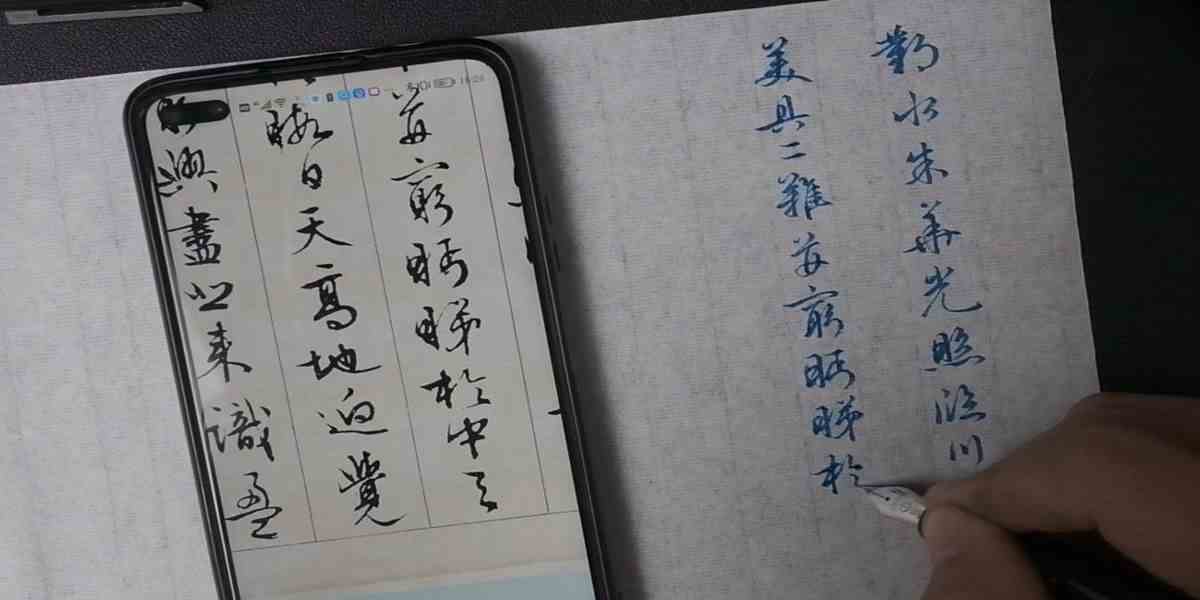 鄴水朱華光照臨川
美具二難并窮眄睇於
并窮眄睇於中天
暇日天高地迥覺
興盡悲來識盈